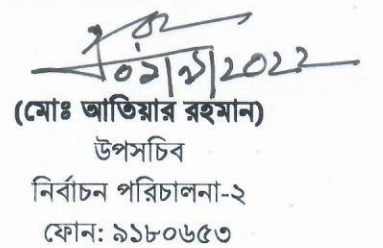 2022
(মোঃ আতিয়ার রহমান)
উপসচিব
নির্বাচন পরিচালনা-২
ফোন: ৯১৮০৬৫৩